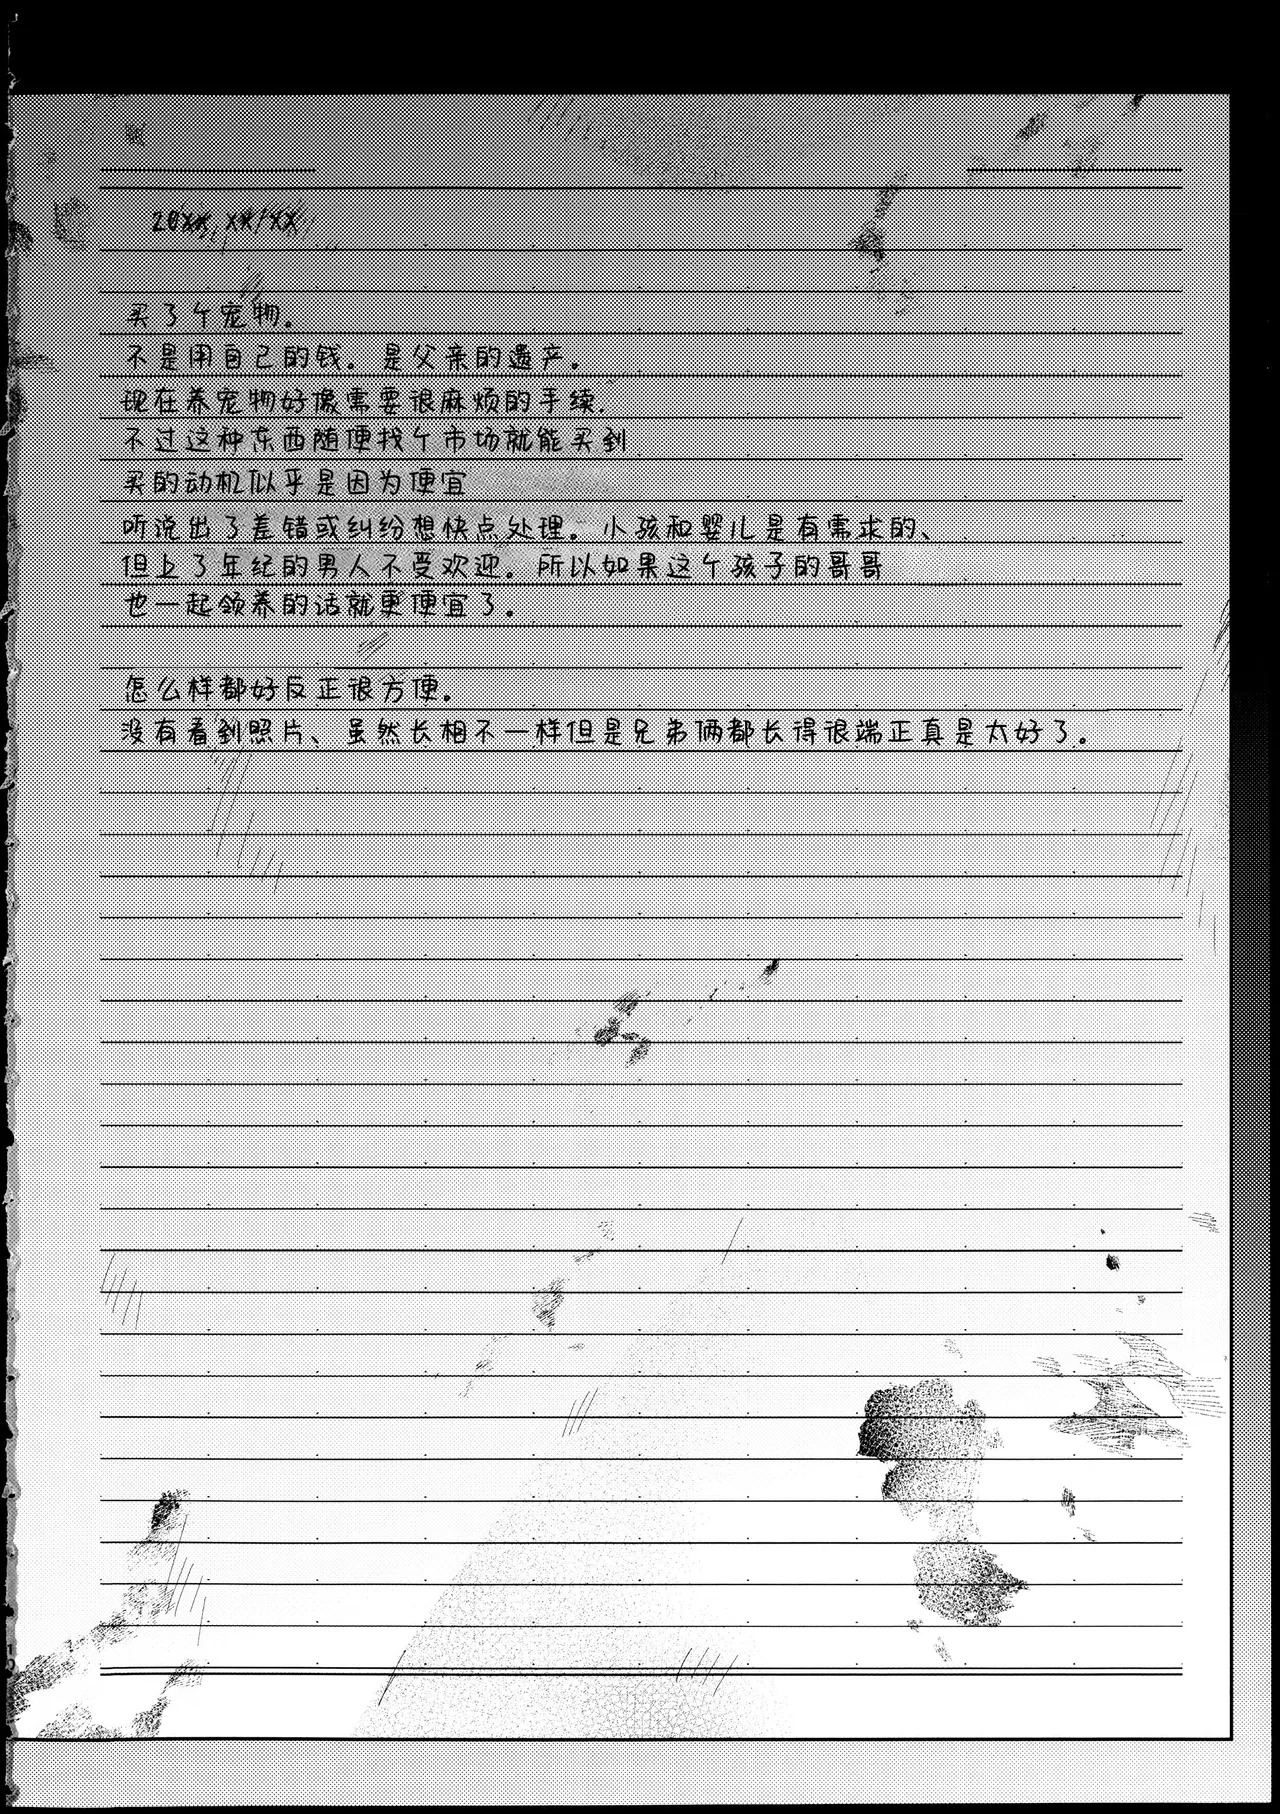 20XX, XX/XX
买了个宠物。
不是用自己的钱。是父亲的遗产。
现在养宠物好像需要很麻烦的手续.
不过这种东西随便找个市场就能买到
买的动机似乎是因为便宜
听说出了差错或纠纷想快点处理。小孩和婴儿是有需求的、
但上了年纪的男人不受欢迎。所以如果这个孩子的哥哥
也一起领养的话就更便宜了。
怎么样都好反正很方便。
没有看到照片、虽然长相不一样但是兄弟俩都长得很端正真是太好了。